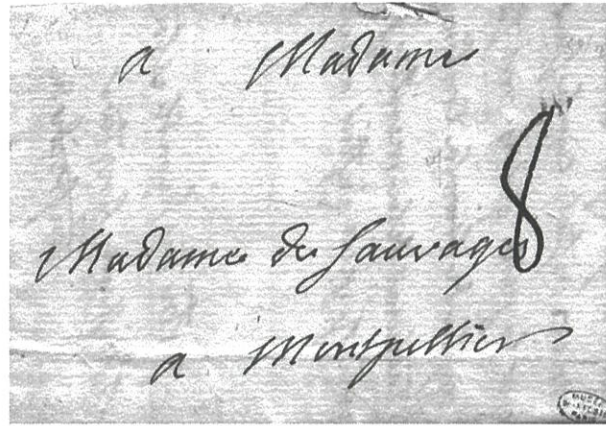 a Madame
8
Madame de Sauvages
a Montpellier